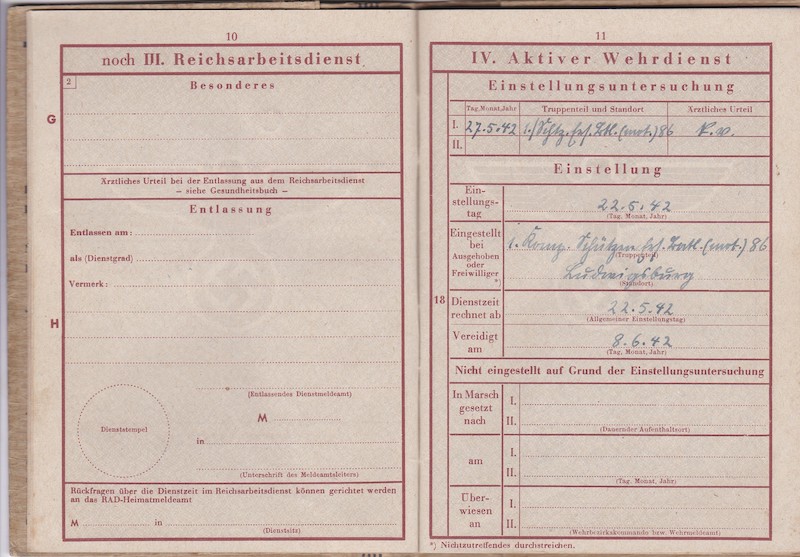 10
noch III. Reichsarbeitsdienst
2
Besonderes
G
Ärztliches Urteil bei der Entlassung aus dem Reichsarbeitsdienst
– siehe Gesundheitsbuch –
Entlassung
Entlassen am:
als (Dienstgrad)
Vermerk:
H
(Entlassendes Dienstmeldeamt)
Dienststempel
M
in
(Unterschrift des Meldeamtsleiters)
Rückfragen über die Dienstzeit im Reichsarbeitsdienst können gerichtet werden
an das RAD-Heimatmeldeamt
M in
(Dienstsitz)
11
IV. Aktiver Wehrdienst
Einstellungsuntersuchung
Tag, Monat, Jahr Truppenteil und Standort Ärztliches Urteil
I. 27.5.42 1./Schtz. Ers. Btl. (mot.) 86 k.v.
II.
Einstellung
Ein-
stellungs-
tag
22.5.42
(Tag, Monat, Jahr)
Eingestellt
bei
Ausgehoben
oder
Freiwilliger
*)
1. Komp. Schützen Ers. Batl. (mot.) 86
(Truppenteil)
Ludwigsburg
(Standort)
18
Dienstzeit
rechnet ab
22.5.42
(Allgemeiner Einstellungstag)
Vereidigt
am
8.6.42
(Tag, Monat, Jahr)
Nicht eingestellt auf Grund der Einstellungsuntersuchung
In Marsch
gesetzt
nach
I.
II.
(Dauernder Aufenthaltsort)
am
I.
II.
(Tag, Monat, Jahr)
Über-
wiesen
an
I.
II.
(Wehrbezirkskommando bzw. Wehrmeldeamt)
*) Nichtzutreffendes durchstreichen.